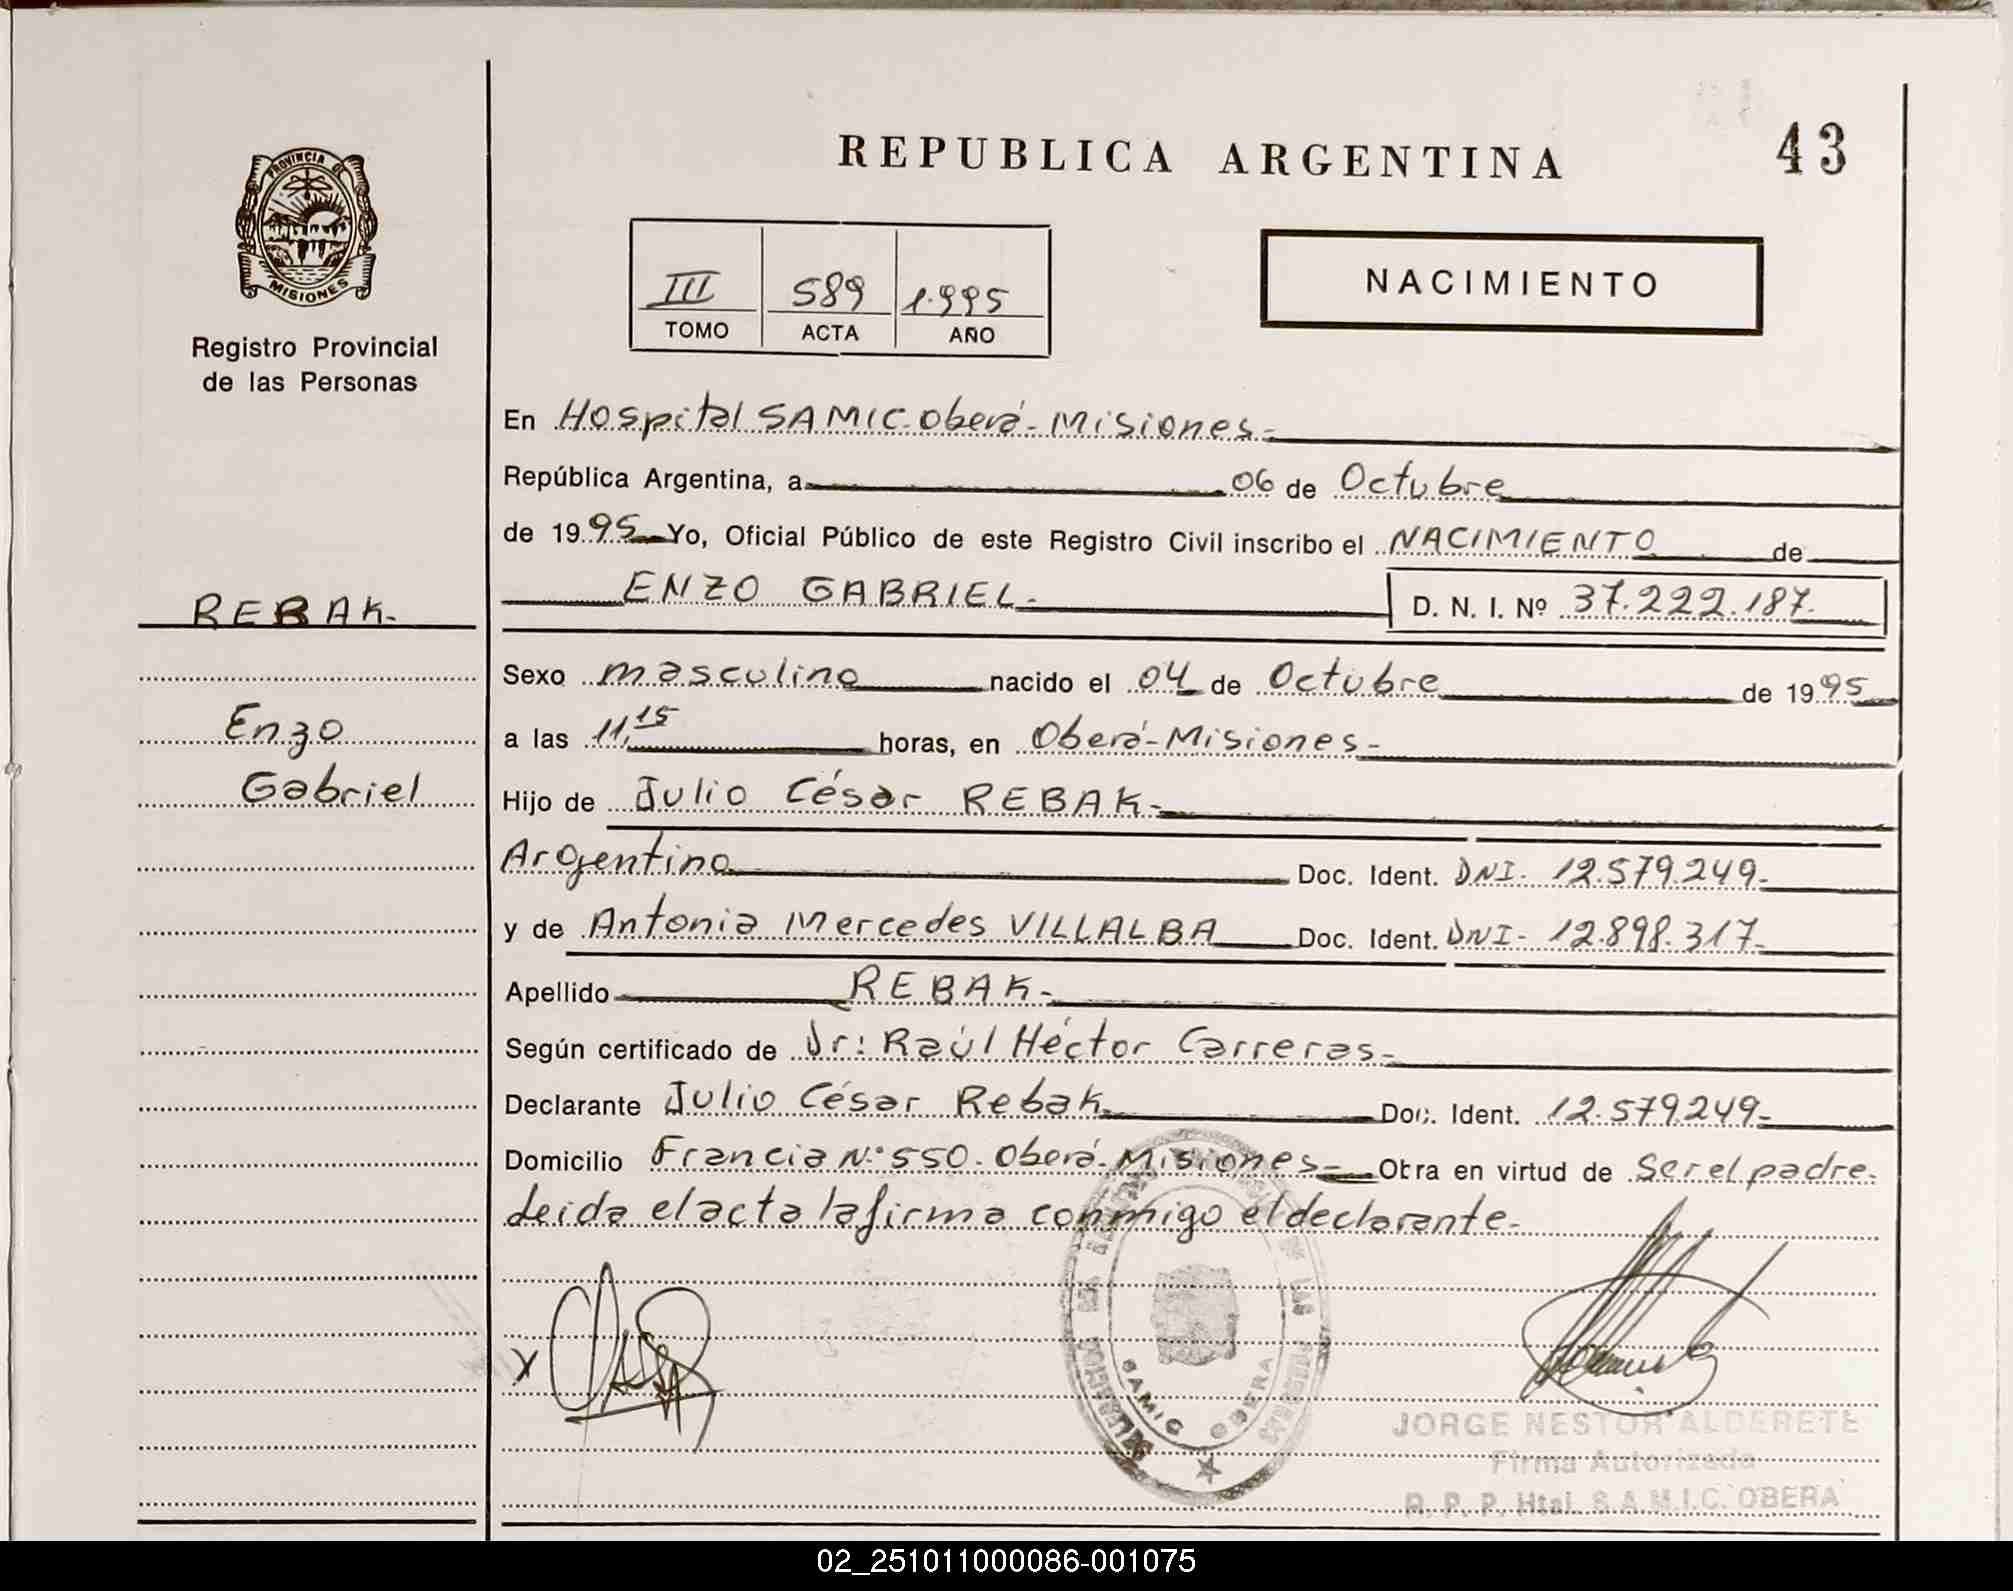 REPUBLICA ARGENTINA
43
PROVINCIA DE
MISIONES
Registro Provincial
de las Personas
III 589 1.995
TOMO ACTA AÑO
NACIMIENTO
En Hospital SAMIC-Oberá-Misiones-
República Argentina, a 06 de Octubre
de 1995 Yo, Oficial Público de este Registro Civil inscribo el NACIMIENTO de
ENZO GABRIEL- D. N. I. Nº 37.222.187.
REBAK-
Enzo
Gabriel
Sexo masculino nacido el 04 de Octubre de 1995
a las 11,15 horas, en Oberá-Misiones-
Hijo de Julio César REBAK-
Argentino Doc. Ident. DNI- 12.579.249-
y de Antonia Mercedes VILLALBA Doc. Ident. DNI- 12.898.317-
Apellido REBAK-
Según certificado de Dr: Raúl Héctor Carreras-
Declarante Julio César Rebak Doc. Ident. 12.579.249-
Domicilio Francia N° 550-Oberá-Misiones- Obra en virtud de ser el padre-
Leida el acta la firma conmigo el declarante-
X
SAMIC OBERA
JORGE NESTOR ALDERETE
Firma Autorizada
R. P. P. Htal. S.A.M.I.C. OBERA
02_251011000086-001075